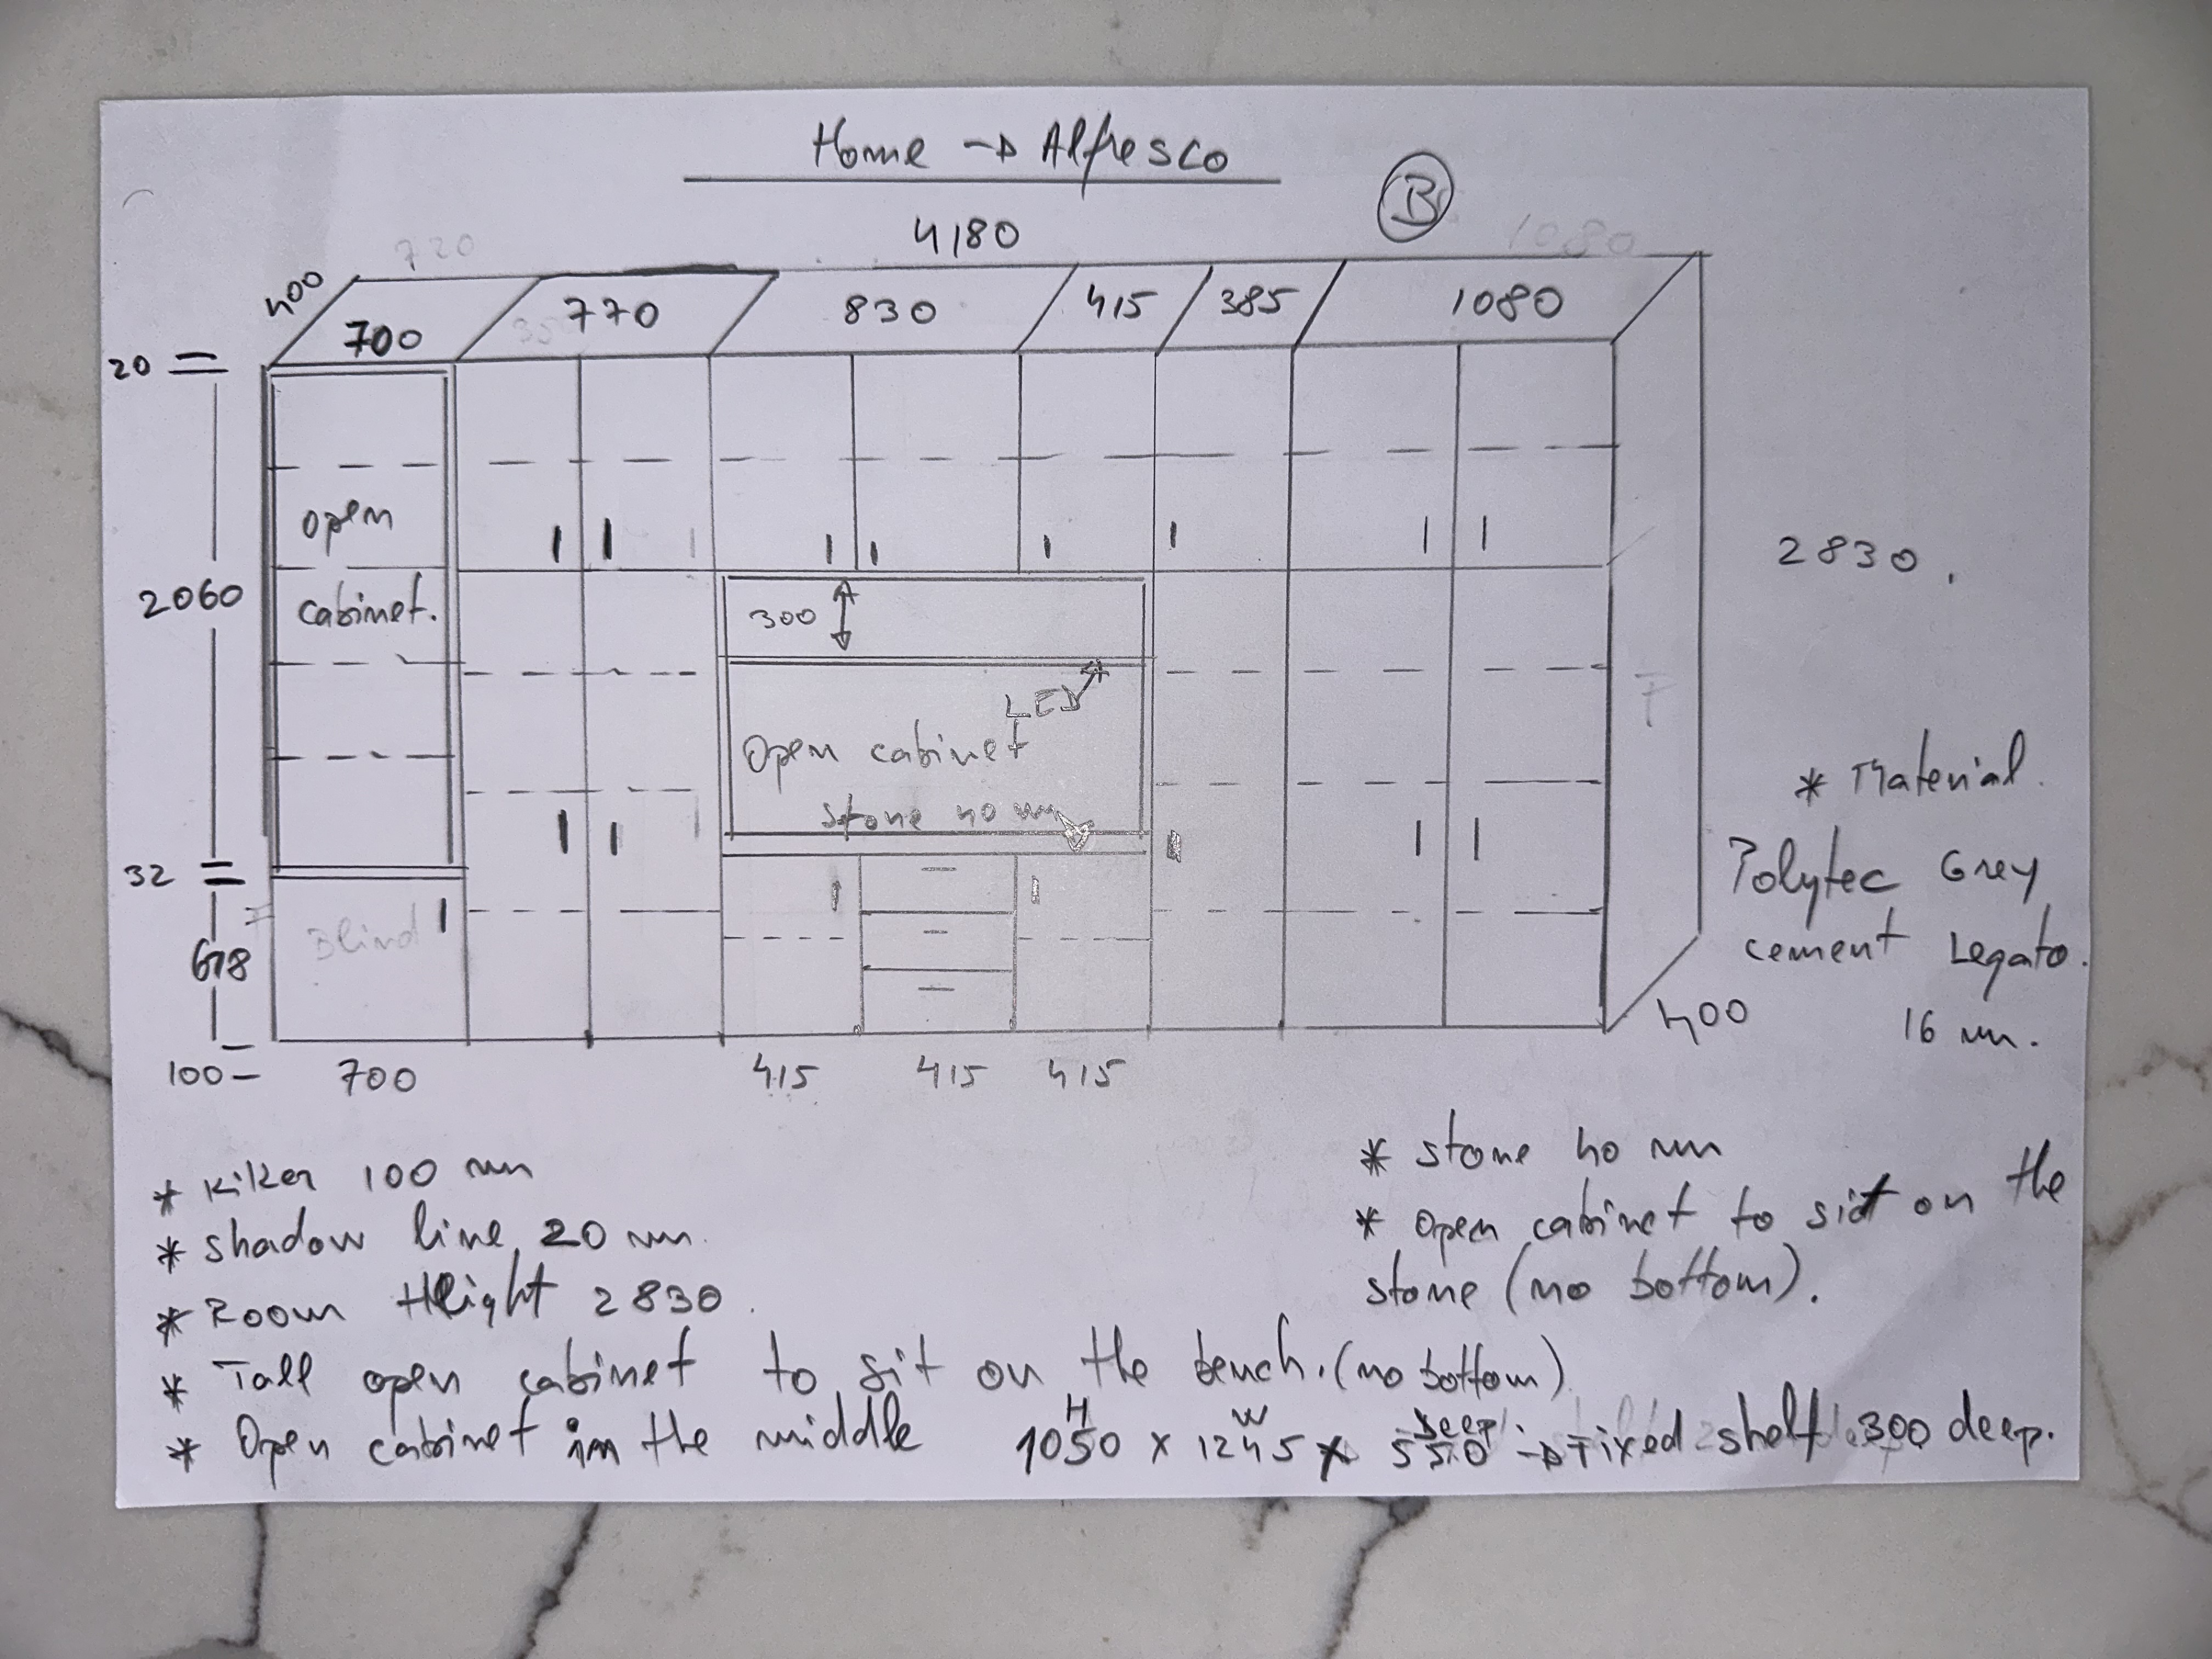 Home → Alfresco
B
4180
720
1080
400
700
770
830
415
385
1080
20
open
cabinet.
300
2830.
2060
LED
Open cabinet
stone 40 mm
* Material.
Polytec Grey
cement Legato.
16 mm.
32
Blind
618
400
100
700
415
415
415
* Kiker 100 mm
* shadow line 20 mm.
* Room Height 2830.
* stone 40 mm
* open cabinet to sit on the
stone (no bottom).
* Tall open cabinet to sit on the bench. (no bottom)
H W Deep
* Open cabinet in the middle 1050 x 1245 x 550 → Fixed shelf 300 deep.